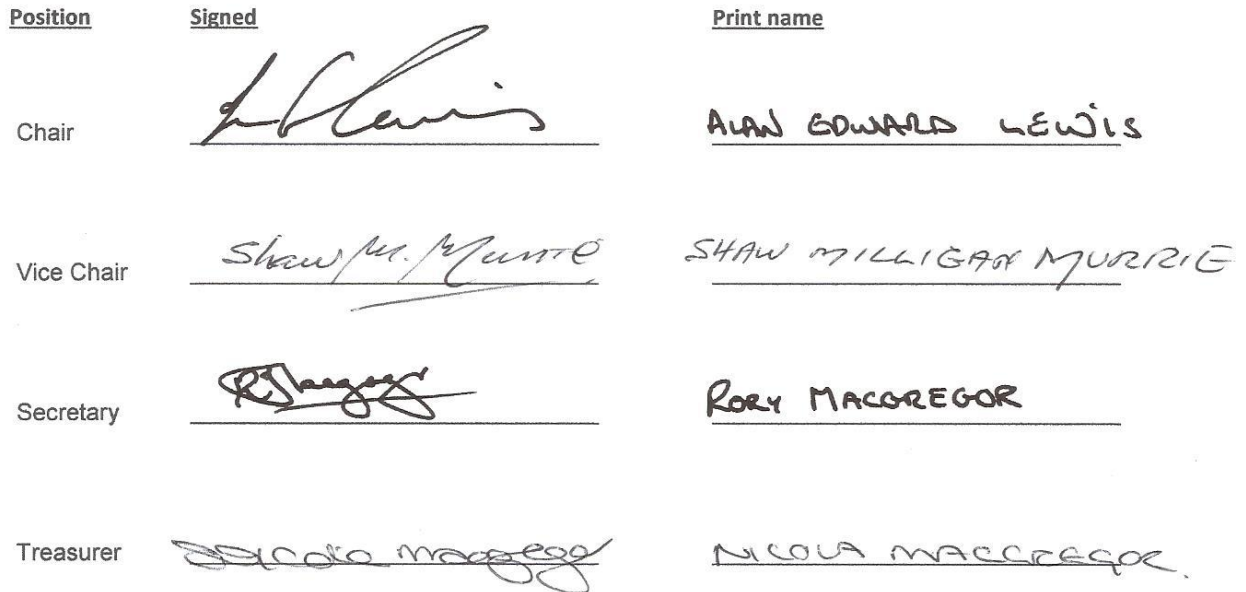 Position Signed Print name
Chair Lewis ALAN EDWARD LEWIS
Vice Chair Shaw M. Murrie SHAW MILLIGAN MURRIE
Secretary RORY MACGREGOR
Treasurer Nicola Macgregor NICOLA MACGREGOR.